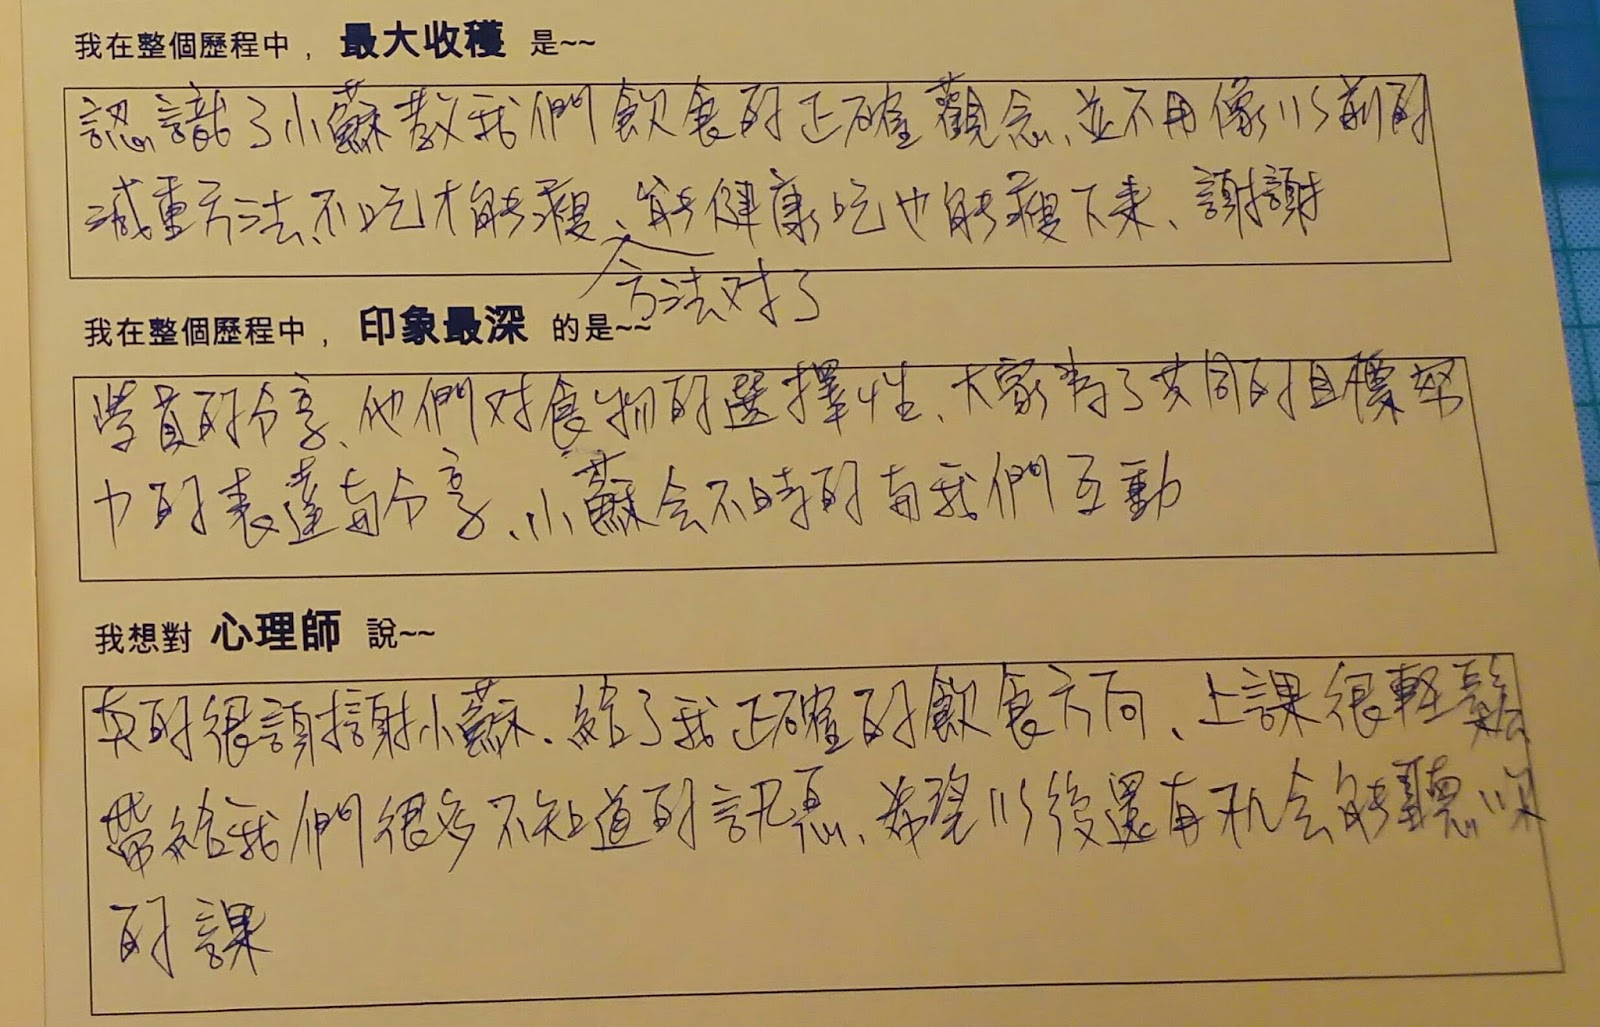 我在整個歷程中，最大收穫 是~~
認識了小蘇教我們飲食的正確觀念、並不用像以前的
減重方法、不吃才能瘦、能健康吃也能瘦下來、謝謝
方法对了
我在整個歷程中，印象最深 的是~~
學員的分享、他們对食物的選擇性、大家為了共同的目標努
力的表達與分享、小蘇会不時的與我們互動
我想對 心理師 說~~
真的很謝謝小蘇、給了我正確的飲食方向、上課很輕鬆
帶給我們很多不知道的訊息、希望以後還有机会能聽
的課